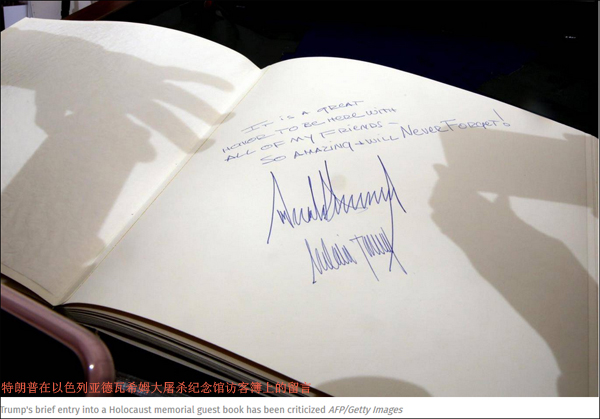 IT IS A GREAT
HONOR TO BE HERE WITH
ALL OF MY FRIENDS -
SO AMAZING + WILL NEVER FORGET!
特朗普在以色列亚德瓦希姆大屠杀纪念馆访客簿上的留言
Trump's brief entry into a Holocaust memorial guest book has been criticized AFP/Getty Images